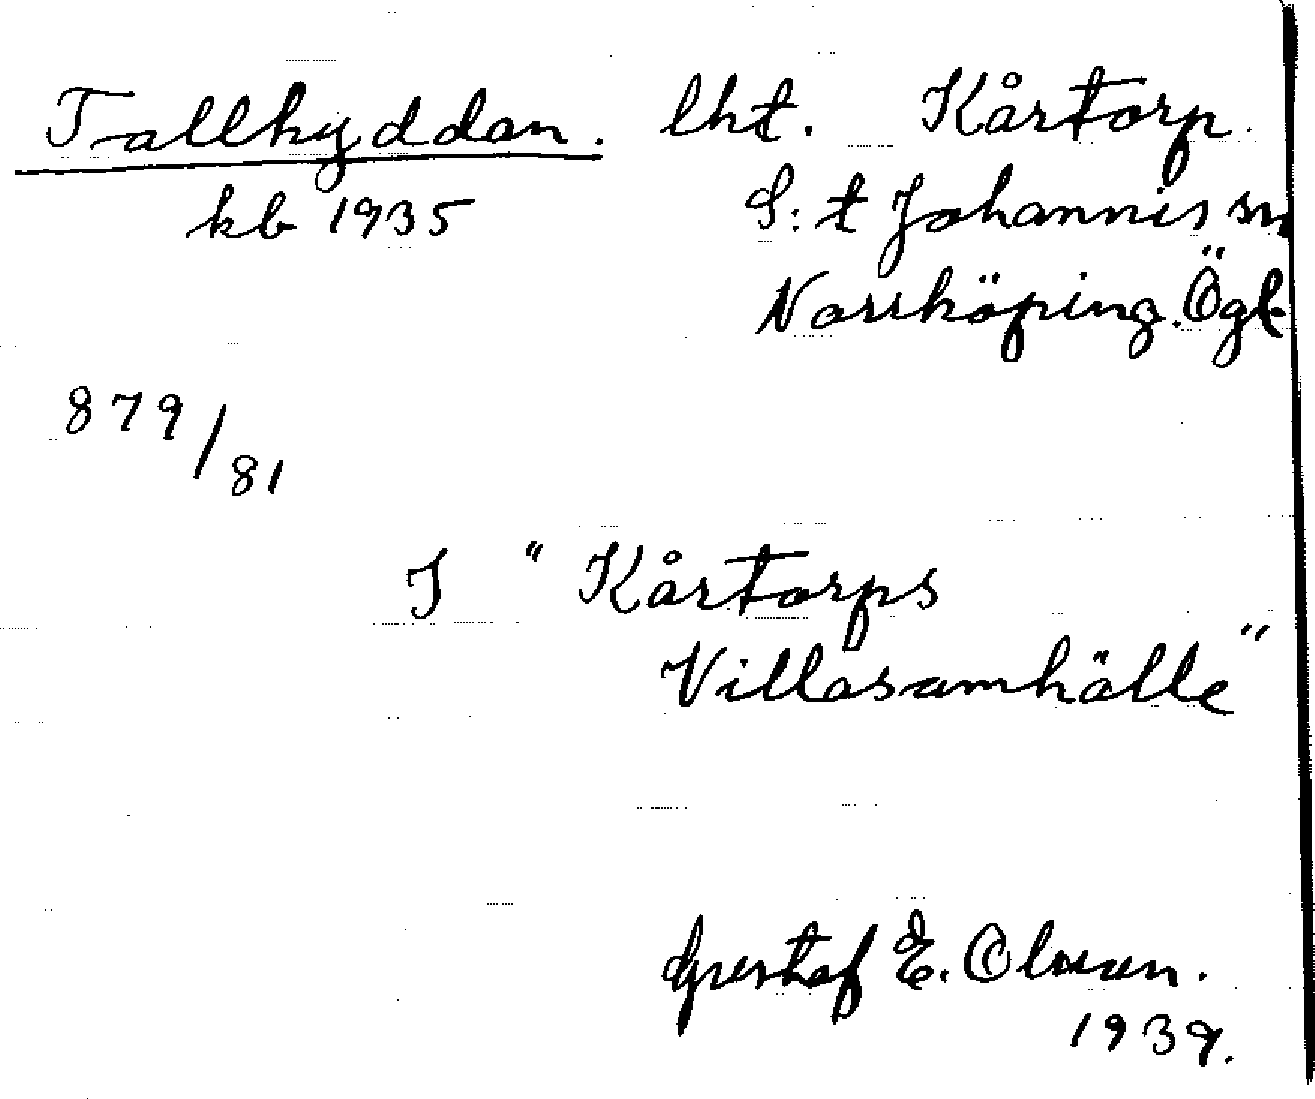 Tallhyddan. lht. Kårtorp.
kb 1935 S:t Johannis sn
Norrköping. Ögl.
879/81
I "Kårtorps
Villasamhälle"
Gustaf E. Olsson.
1939.